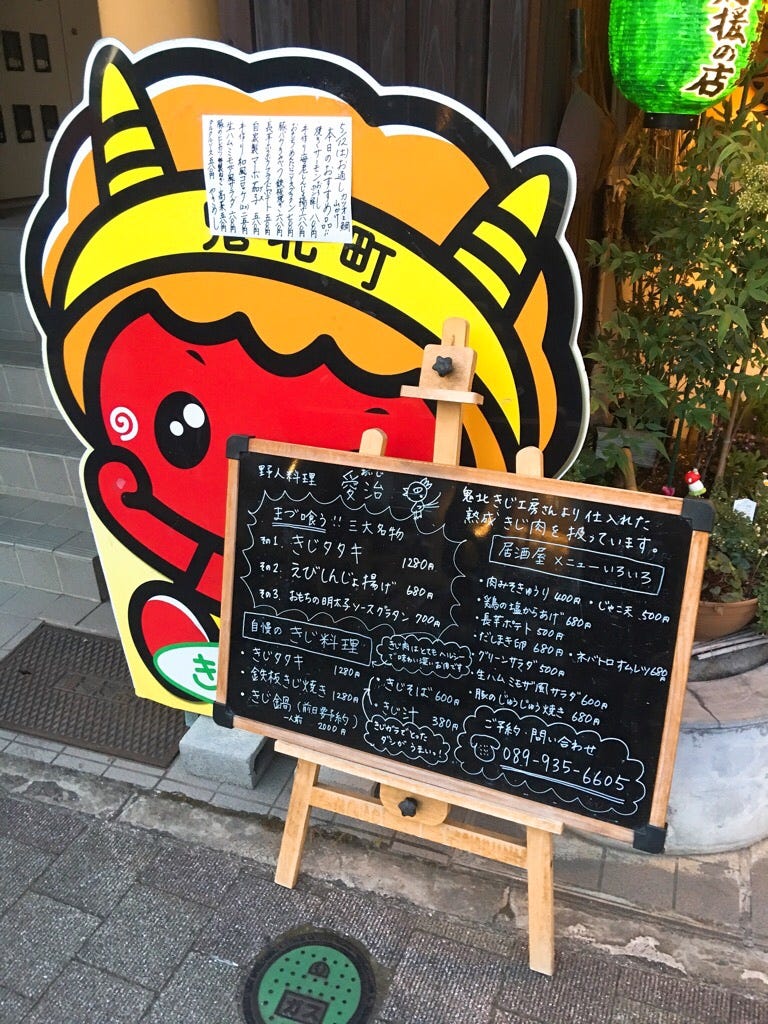 援の店
5/12(土)お通し カツオと鯛
本日のおすすめ
鬼北町
野人料理
あいじ
愛治
まづ喰う!!三大名物
その1. きじタタキ 1280円
その2. えびしんじょ揚げ 680円
その3. おもちの明太子ソースグラタン 700円
自慢の きじ料理
きじ肉はとてもヘルシー
で味わい深いお肉です
・きじタタキ 1280円
・鉄板きじ焼き 1280円
・きじ鍋(前日要予約)
一人前 2000円
・きじそば 600円
・きじ汁 380円
きじガラでとった
ダシがうまいっ!
鬼北きじ工房さんより仕入れた
熟成きじ肉を扱っています。
居酒屋メニューいろいろ
・肉みそきゅうり 400円 ・じゃこ天 500円
・鶏の塩からあげ 680円
・長芋ポテト 500円
・だしまき卵 680円 ・ネバトロオムレツ 680
・グリーンサラダ 500円
・生ハムミモザ風サラダ 600円
・豚のじゅうじゅう焼き 680円
ご予約・問い合わせ
089-935-6605
き
ガス